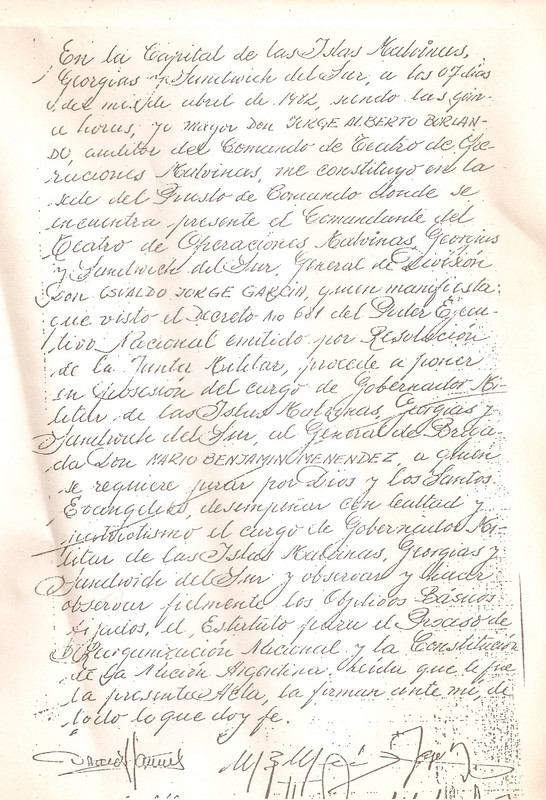 En la Capital de las Islas Malvinas,
Georgias y Sandwich del Sur, a los 07 dias
del mes de abril de 1982, siendo las quin-
ce horas, yo mayor Don JORGE ALBERTO BURLAN-
DO, auditor del Comando de Teatro de Ope-
raciones Malvinas, me constituyo en la
sede del Puesto de Comando donde se
encuentra presente el Comandante del
Teatro de Operaciones Malvinas, Georgias
y Sandwich del Sur, General de División
Don OSVALDO JORGE GARCIA, quien manifiesta:
que visto el Decreto No 681 del Poder Ejecu-
tivo Nacional emitido por Resolución
de la Junta Militar, procede a poner
en posesión del cargo de Gobernador Mi-
litar de las Islas Malvinas, Georgias y
Sandwich del Sur, al General de Briga-
da Don MARIO BENJAMIN MENENDEZ, a quien
se requiere jurar por Dios y los Santos
Evangelios, desempeñar con lealtad y
patriotismo el cargo de Gobernador Mi-
litar de las Islas Malvinas, Georgias y
Sandwich del Sur y observar y hacer
observar fielmente los Objetivos Básicos
fijados, el Estatuto para el Proceso de
Reorganización Nacional y la Constitución
de la Nación Argentina. Leída que le fue
la presente Acta, la firman ante mí, de
todo lo que doy fe.